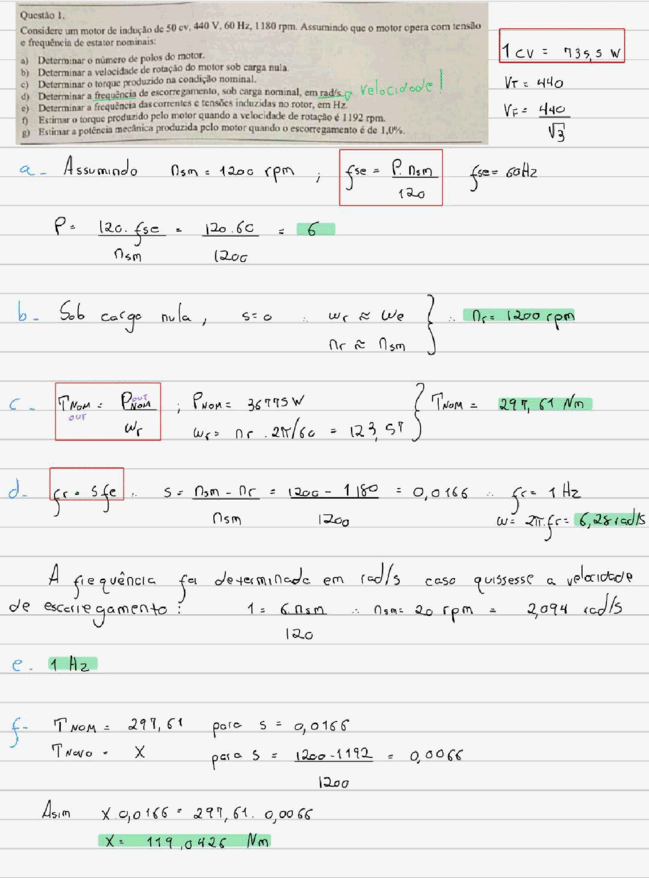 Questão 1.
Considere um motor de indução de 50 cv, 440 V, 60 Hz, 1180 rpm. Assumindo que o motor opera com tensão
e frequência de estator nominais:
a) Determinar o número de polos do motor.
b) Determinar a velocidade de rotação do motor sob carga nula.
c) Determinar o torque produzido na condição nominal.
d) Determinar a frequência de escorregamento, sob carga nominal, em rad/s. velocidade!
e) Determinar a frequência das correntes e tensões induzidas no rotor, em Hz.
f) Estimar o torque produzido pelo motor quando a velocidade de rotação é 1192 rpm.
g) Estimar a potência mecânica produzida pelo motor quando o escorregamento é de 1,0%.
1 CV = 735,5 W
VT = 440
VF = 440
√3
a - Assumindo nsm = 1200 rpm ; fse = P. nsm / 120 fse = 60Hz
P = 120. fse / nsm = 120.60 / 1200 = 6
b - Sob carga nula, s=0 ∴ wr ≈ we } ∴ nr = 1200 rpm
nr ≈ nsm
c - TNOM out = Pout NOM / wr ; PNOM = 36775W } TNOM = 297,61 Nm
wr = nr . 2π/60 = 123,57
d - fr = sfe ∴ s = nsm - nr / nsm = 1200 - 1180 / 1200 = 0,0166 ∴ fr = 1 Hz
w = 2π.fr = 6,28 rad/s
A frequência foi determinada em rad/s caso quissesse a velocidade
de escorregamento: 1 = 6 nsm / 120 ∴ nsm = 20 rpm = 2,094 rad/s
e. 1 Hz
f - TNOM = 297,61 para s = 0,0166
TNOVO = X para s = 1200-1192 / 1200 = 0,0066
Asim X.0,0166 = 297,61. 0,0066
X = 119,0426 Nm